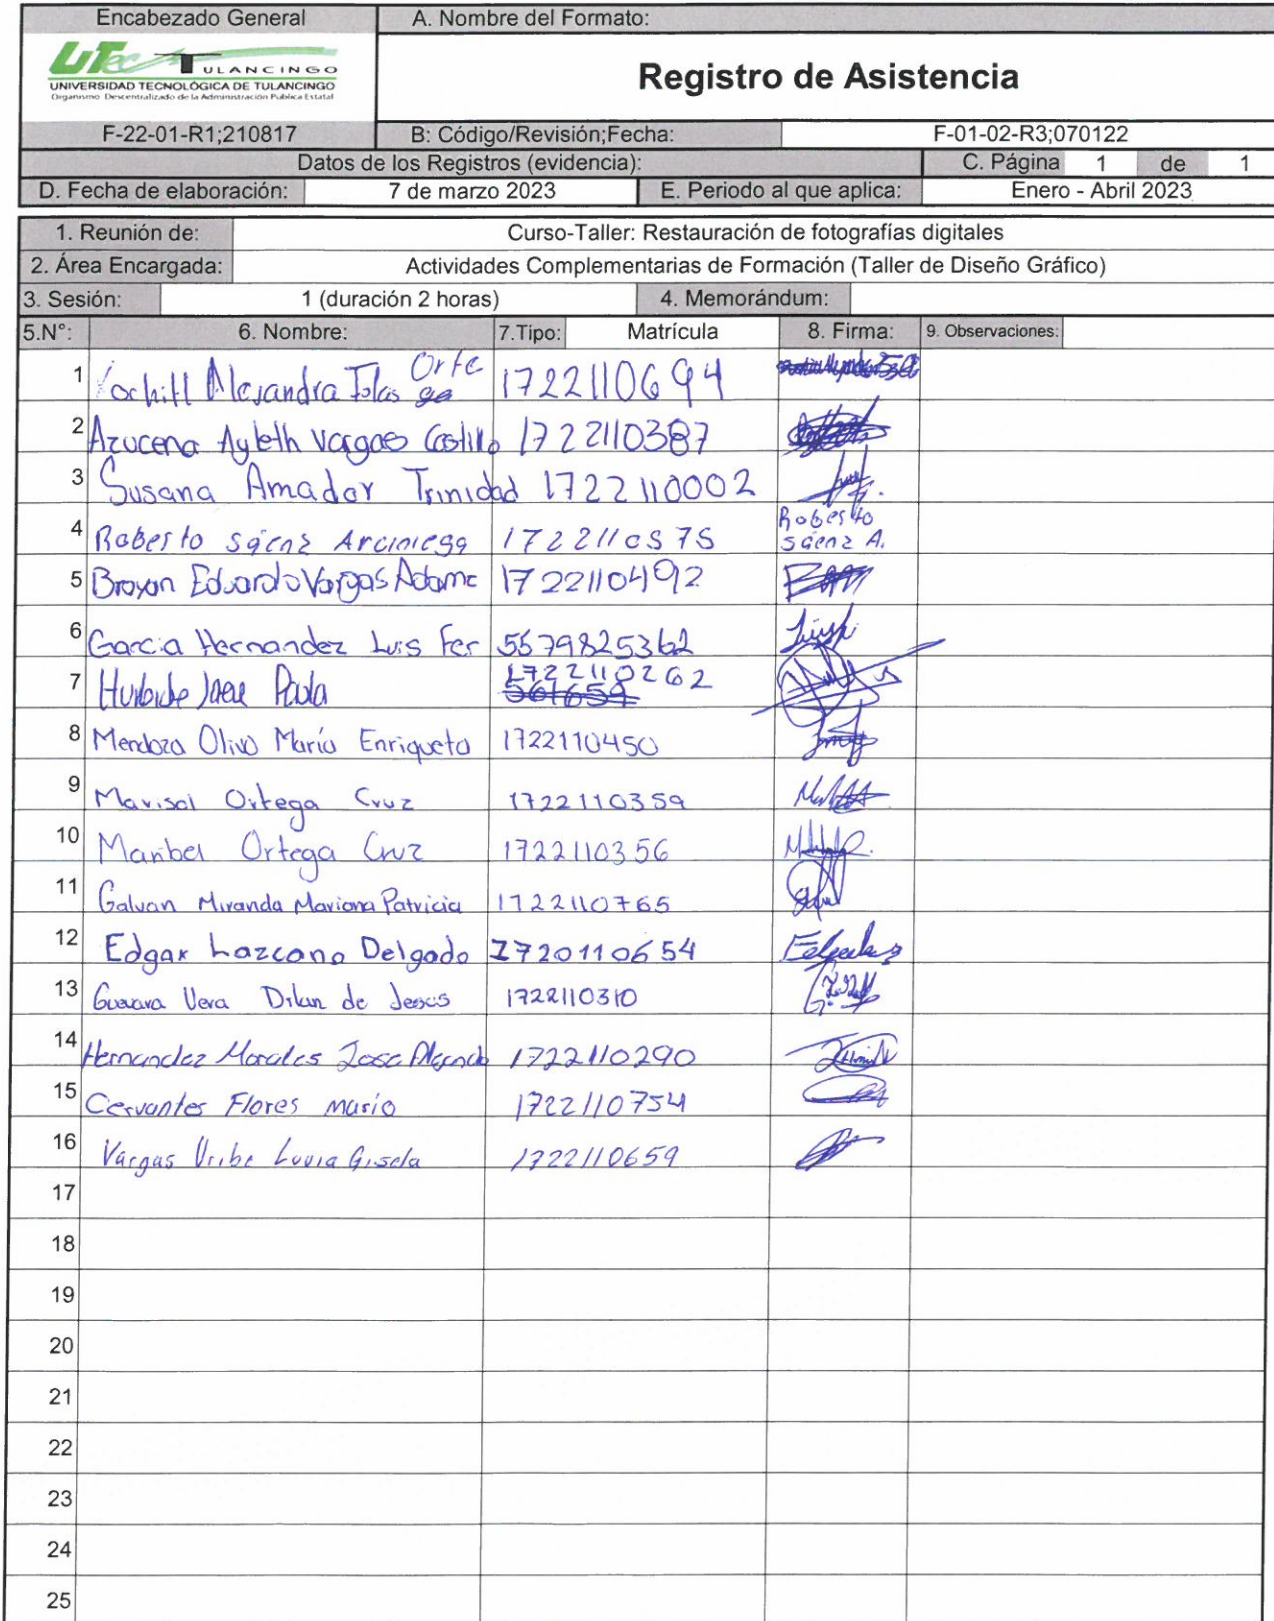 Encabezado General A. Nombre del Formato:
UTec TULANCINGO
UNIVERSIDAD TECNOLÓGICA DE TULANCINGO
Organismo Descentralizado de la Administración Publica Estatal
Registro de Asistencia
F-22-01-R1;210817 B: Código/Revisión;Fecha: F-01-02-R3;070122
Datos de los Registros (evidencia): C. Página 1 de 1
D. Fecha de elaboración: 7 de marzo 2023 E. Periodo al que aplica: Enero - Abril 2023
1. Reunión de: Curso-Taller: Restauración de fotografías digitales
2. Área Encargada: Actividades Complementarias de Formación (Taller de Diseño Gráfico)
3. Sesión: 1 (duración 2 horas) 4. Memorándum:
5.N°: 6. Nombre: 7.Tipo: Matrícula 8. Firma: 9. Observaciones:
1 Xochitl Alejandra Islas Ortega 1722110694
2 Azucena Ayleth Vargas Castillo 1722110387
3 Susana Amador Trinidad 1722110002
4 Roberto sáenz Arciniega 1722110575 Roberto sáenz A.
5 Brayan Eduardo Vargas Adame 1722110492
6 Garcia Hernandez Luis Fer 5579825362
7 Paola 1722110262
8 Mendoza Olivo María Enriqueta 1722110450
9 Marisol Ortega Cruz 1722110359
10 Maribel Ortega Cruz 1722110356
11 Galvan Miranda Mariana Patricia 1722110765
12 Edgar Lazcano Delgado 1720110654
13 Guevara Vera Dilan de Jesus 1722110310
14 Hernandez Morales Jose 1722110290
15 Cervantes Flores mario 1722110754
16 Vargas Uribe Luvia Gisela 1722110659
17
18
19
20
21
22
23
24
25